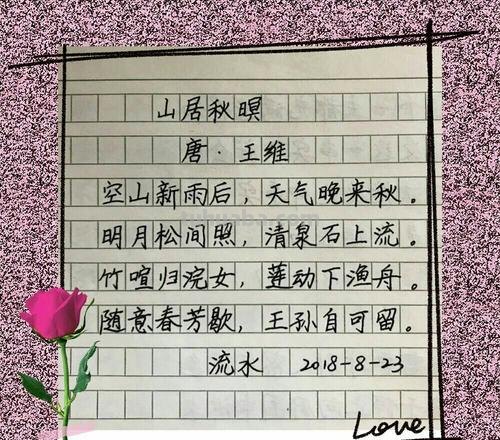 山居秋暝
唐·王维
空山新雨后，天气晚来秋。
明月松间照，清泉石上流。
竹喧归浣女，莲动下渔舟。
随意春芳歇，王孙自可留。
流水 2018-8-23
Love